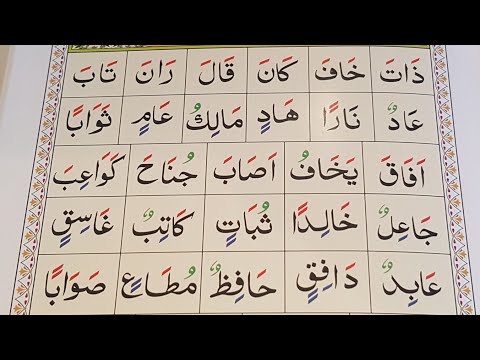 ذَاتَ خَافَ كَانَ قَالَ رَانَ تَابَ
عَادٌ نَارًا هَادٍ مَالِكُ عَامٍ ثَوَابًا
اَفَاقَ يَخَافُ اَصَابَ جُنَاحَ كَوَاعِبَ
جَاعِلٌ خَالِدًا ثُبَاتٍ كَاتِبٌ غَاسِقٍ
عَابِدٌ دَافِقٍ حَافِظٌ مُطَاعٍ صَوَابًا